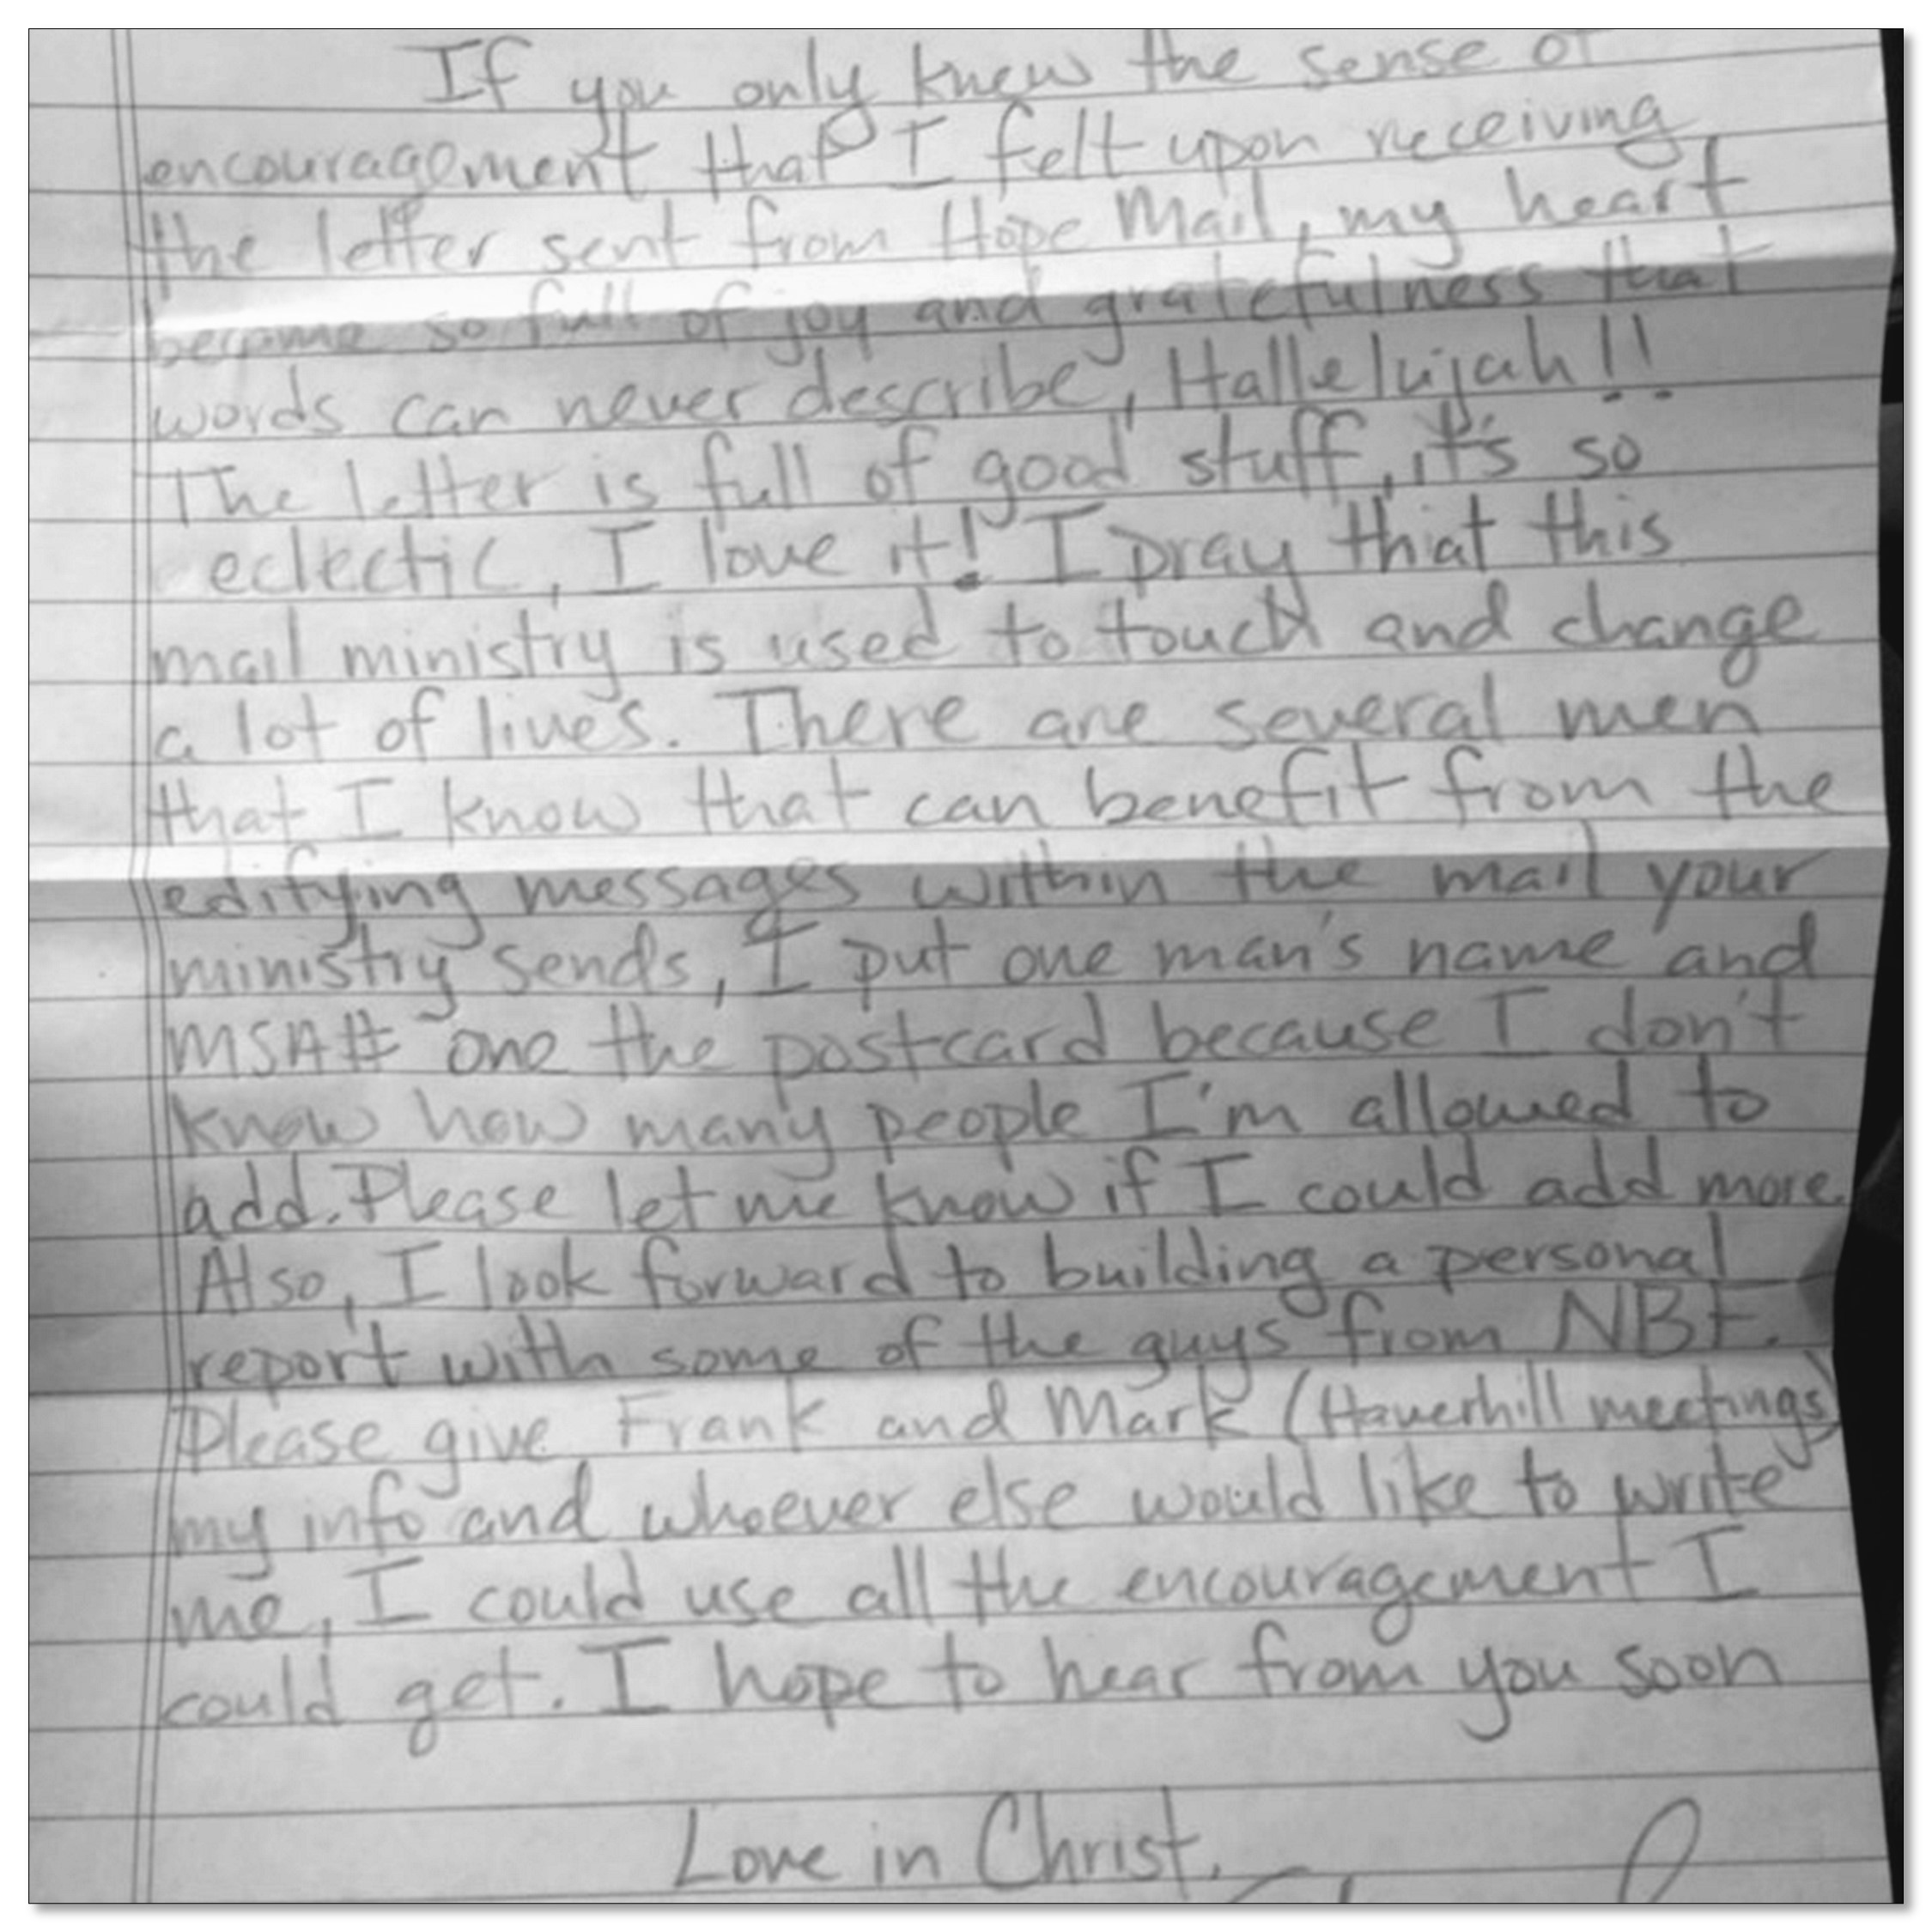 If you only knew the sense of
encouragement that I felt upon receiving
the letter sent from Hope Mail, my heart
became so full of joy and gratefulness that
words can never describe, Hallelujah!!
The letter is full of good stuff, it's so
eclectic, I love it! I pray thiat this
mail ministry is used to touch and change
a lot of lives. There are several men
that I know that can benefit from the
edifying messages within the mail your
ministry sends, I put one man's name and
MSA# one the postcard because I don't
know how many people I'm allowed to
add. Please let me know if I could add more.
Also, I look forward to building a personal
report with some of the guys from NBF.
Please give Frank and Mark (Haverhill meetings)
my info and whoever else would like to write
me, I could use all the encouragement I
could get. I hope to hear from you soon
Love in Christ,